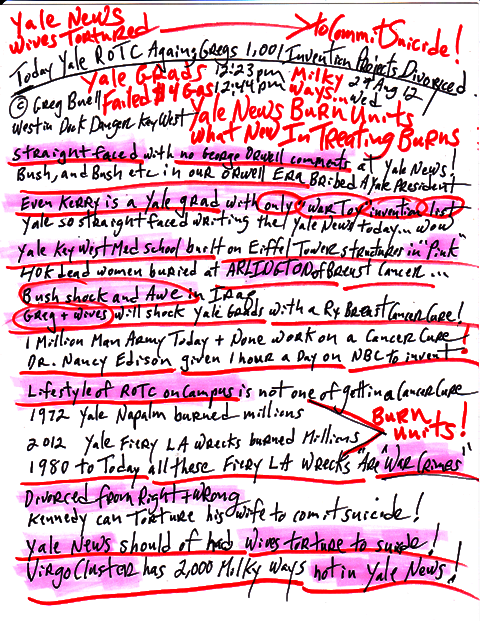 Yale News
Wives Tortured → to Commit Suicide!
Today Yale ROTC Againg Gregs 1,001 Invention Projects Divorced
Yale Grads 12:23pm Milky 29 Aug 12
© Greg Buell Failed $4 Gas 12:44pm Ways... Wed
West in Dock Danger Key West Yale News Burn Units
What New In Treating Burns
Straight faced with no George Orwell comments at Yale News!
Bush, and Bush etc in our Orwell Era Bribed A Yale President
Even Kerry is a Yale grad with only War Toy invention list
Yale so straight faced writing the Yale News today... wow
Yale Key West Med school built on Eiffel Tower structures in "Pink"
40K dead women buried at ARLINGTON of Breast Cancer...
Bush shock and Awe in Iraq
Greg + wives will shock Yale Grads with a Rx Breast Cancer Cure!
1 Million Man Army Today + None work on a Cancer Cure!
Dr. Nancy Edison given 1 hour a Day on NBC to invent!
Lifestyle of ROTC on Campus is not one of getting a Cancer Cure
1972 Yale Napalm burned millions
Burn Units!
2012 Yale Fiery LA Wrecks burned Millions
1980 to Today all these Fiery LA Wrecks "Are War Crimes"
Divorced from Right + Wrong
Kennedy can Torture his wife to comit suicide!
Yale News should of had wives torture to suicide!
Virgo Cluster has 2,000 Milky Ways not in Yale News!